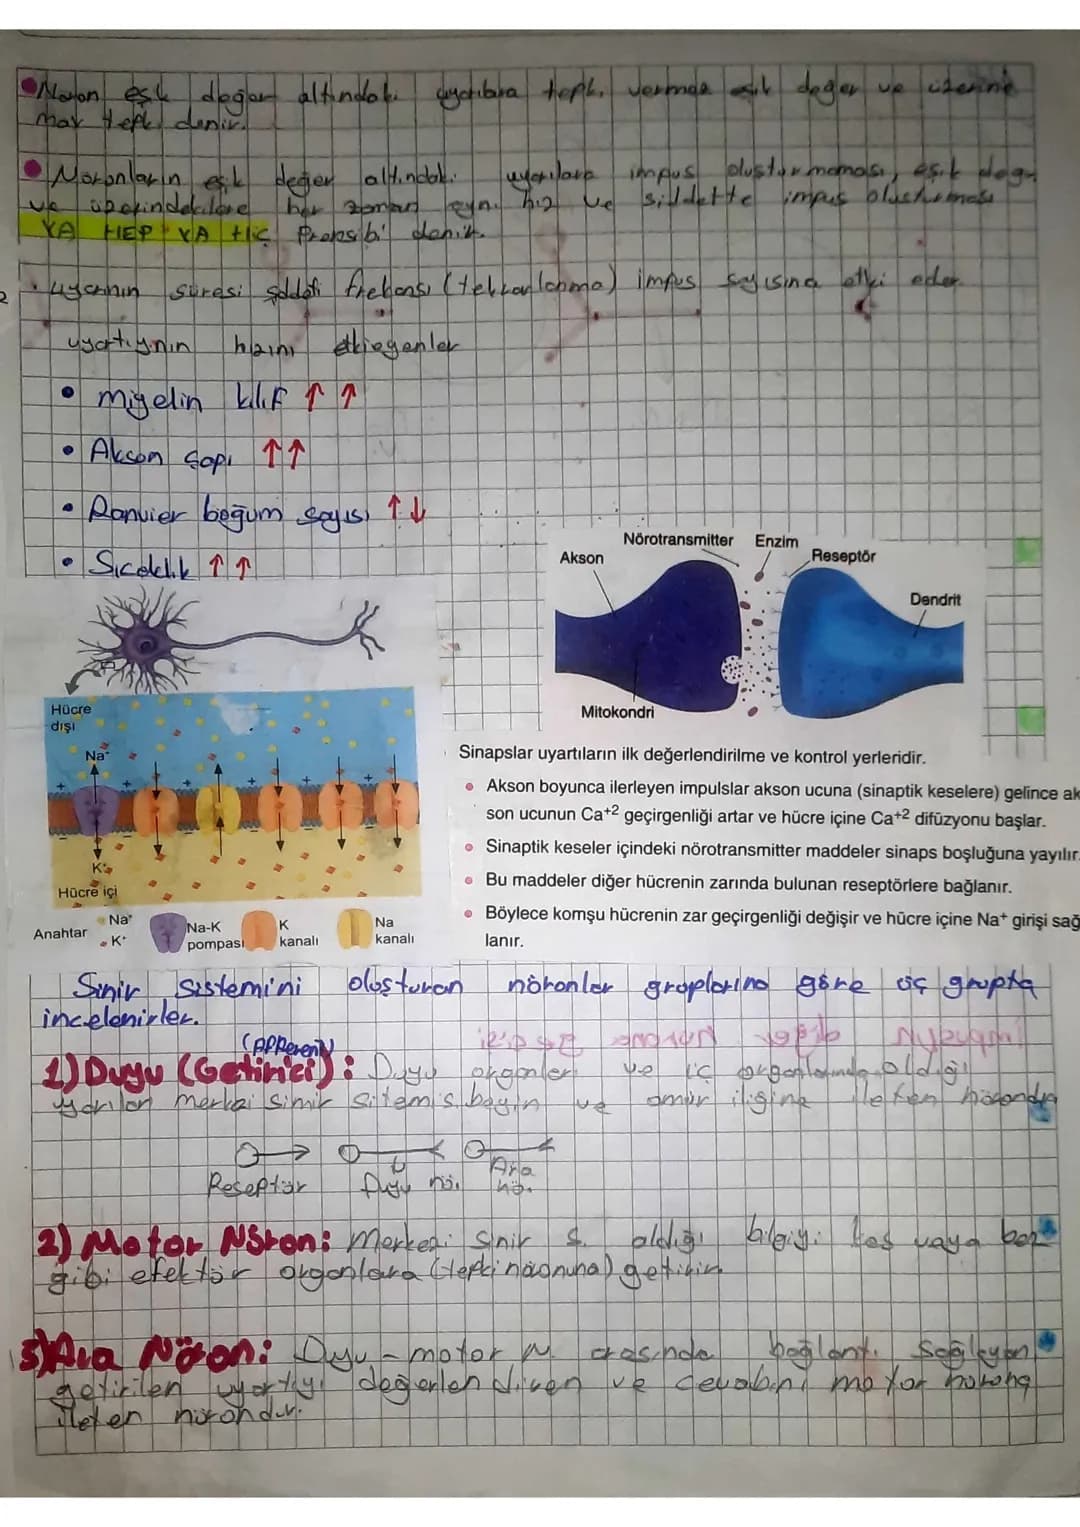 Nöron eşik değer altındaki uyarılara tepki vermede eşik değer ve üzerine
max tepki denir.
Nöronların eşik değer altındaki uyarılara impus oluşturmaması, eşik değer
ve üperindekilere her zaman aynı hız ve şiddette impus oluşturması
YA HEP YA HİÇ Prensibi denir.
uyarının süresi şiddeti frekansı (tekrarlanma) impus sayısına etki eder.
uyartıynın hızını etkiegenler
• migelin kılıf ↑ ↑
• Akson çapı ↑↑
• Ranvier boğum sayısı ↑↓
• Sıcaklık ↑ ↑
Nörotransmitter Enzim
Akson Reseptör
Dendrit
Mitokondri
Hücre
dışı
Na+
K+
Hücre içi
Anahtar
Na+
K+
Na-K
pompası
K
kanalı
Na
kanalı
Sinapslar uyartıların ilk değerlendirilme ve kontrol yerleridir.
Akson boyunca ilerleyen impulslar akson ucuna (sinaptik keselere) gelince ak
son ucunun Ca+2 geçirgenliği artar ve hücre içine Ca+2 difüzyonu başlar.
Sinaptik keseler içindeki nörotransmitter maddeler sinaps boşluğuna yayılır.
Bu maddeler diğer hücrenin zarında bulunan reseptörlere bağlanır.
Böylece komşu hücrenin zar geçirgenliği değişir ve hücre içine Na+ girişi sağ
lanır.
Sinir Sistemini oluşturan nöronlar gruplarına göre üç grupta
incelenirler.
1) Duyu (Getirici): Duyu organları ve iç organlarında oldığı
merkzi sinir sitemis beyin ve omur iliğine ileten
Reseptör Duyu nö. Ara
nö.
2) Motor Nöron: Merkezi sinir s. aldığı bilgiyi kas veya bez
gibi efektör organlara getirir.
3) Ara Nöron: Duyu-motor N. arasında bağlantı sağlayan
getirilen uyartıyı değerlendiren ve cevabını motor nörona
ileten nörondur.